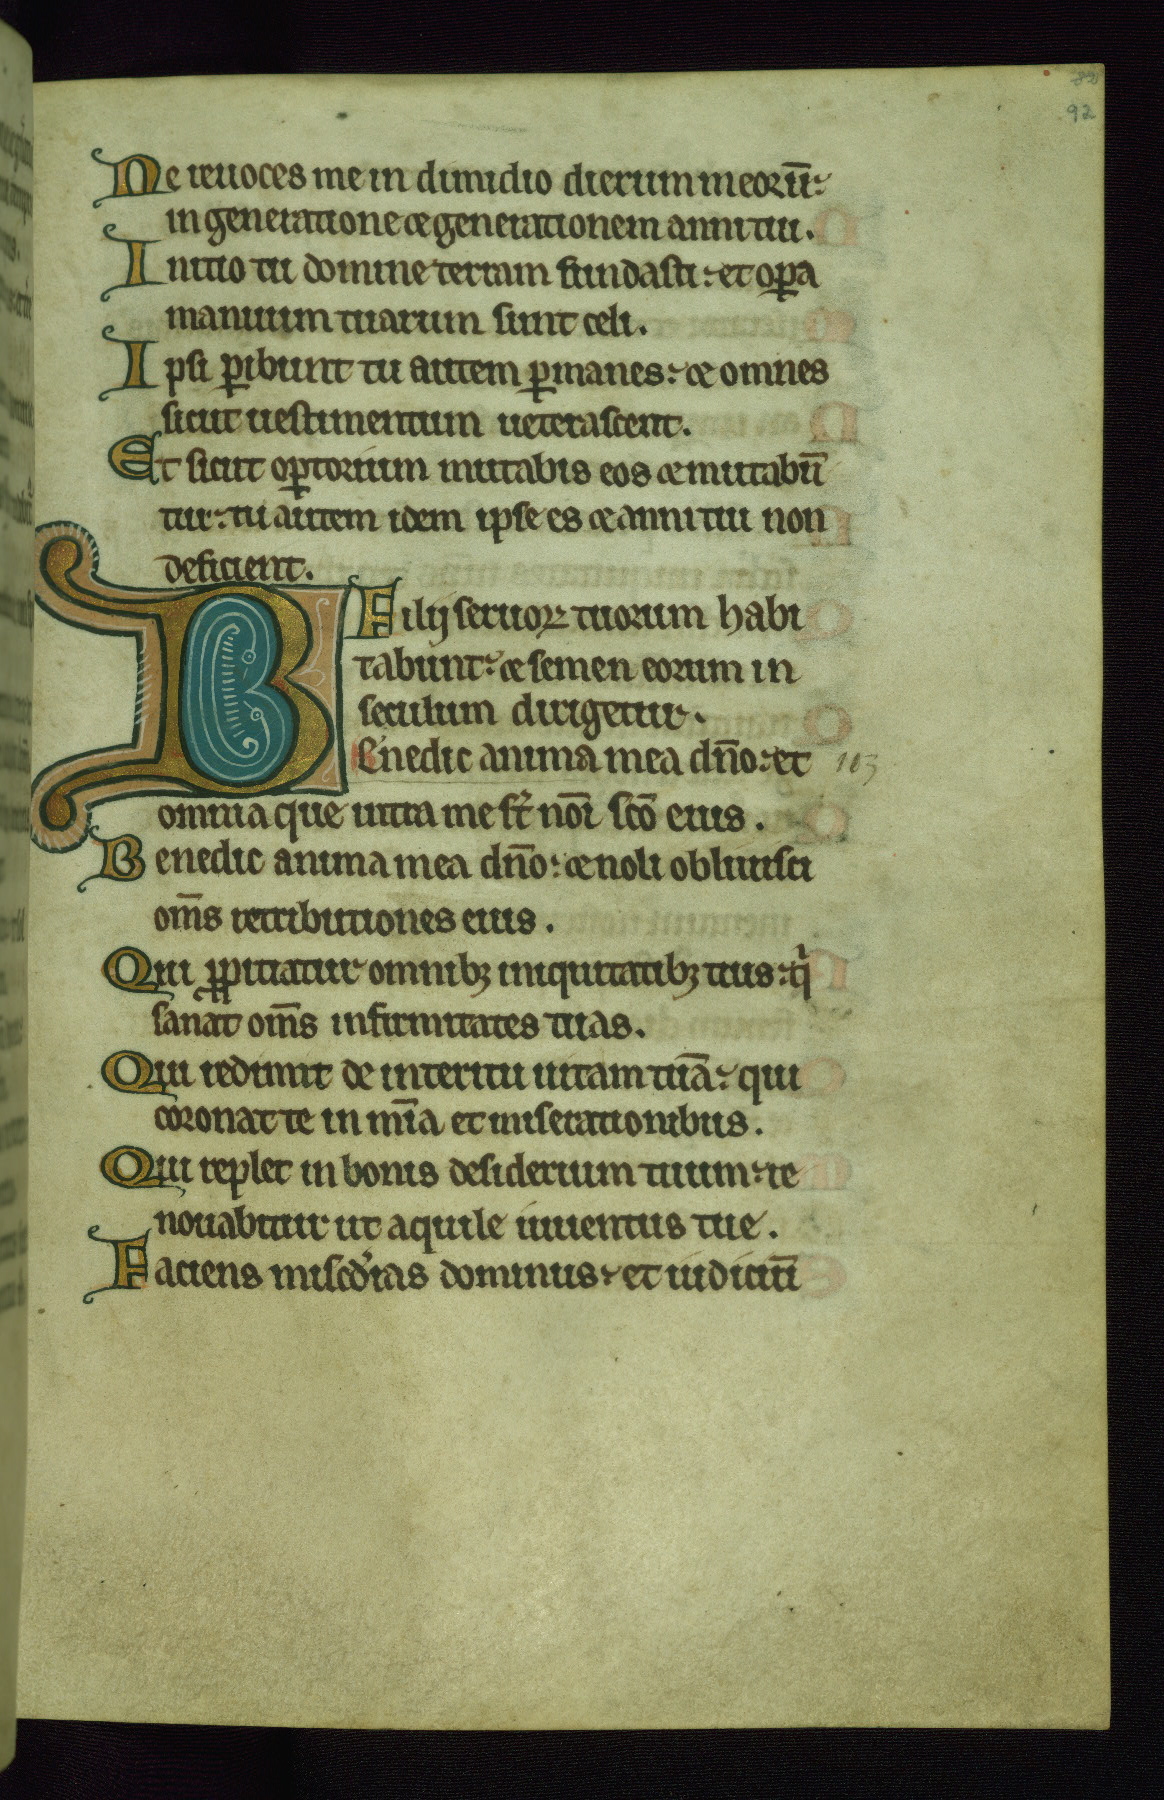 92
Ne reuoces me in dimidio dierum meorū:
in generatione & generationem anni tui.
Initio tu domine terram fundasti: et oꝑa
manuum tuarum sunt celi.
Ipsi ꝑibunt tu autem ꝑmanes: & omnes
sicut uestimentum ueterascent.
Et sicut oꝑtorium mutabis eos & mutabū
tur: tu autem idem ipse es & anni tui non
deficient.
Filij seruoꝝ tuorum habi
tabunt: & semen eorum in
seculum dirigetur.
Benedic anima mea dn̄o: et 103
omnia que intra me st̄ nōi scō eius.
Benedic anima mea dn̄o: & noli obliuisci
om̄s retributiones eius.
Qui ꝓpitiatur omnibꝫ iniquitatibꝫ tuis: qⁱ
sanat om̄s infirmitates tuas.
Qui redimit de interitu uitam tuā: qui
coronat te in mīa et miserationibus.
Qui replet in bonis desiderium tuum: re
nouabitur ut aquile iuuentus tue.
Faciens misc̄dias dominus: et iudiciū